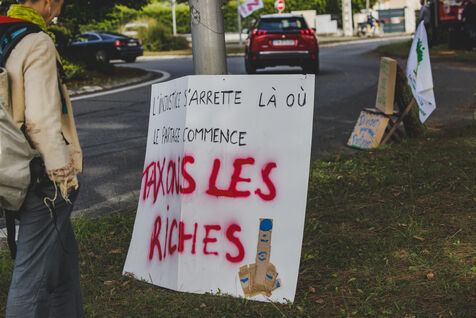 L'INJUSTICE S'ARRETE LÀ OÙ
LE PARTAGE COMMENCE
TAXONS LES
RICHES